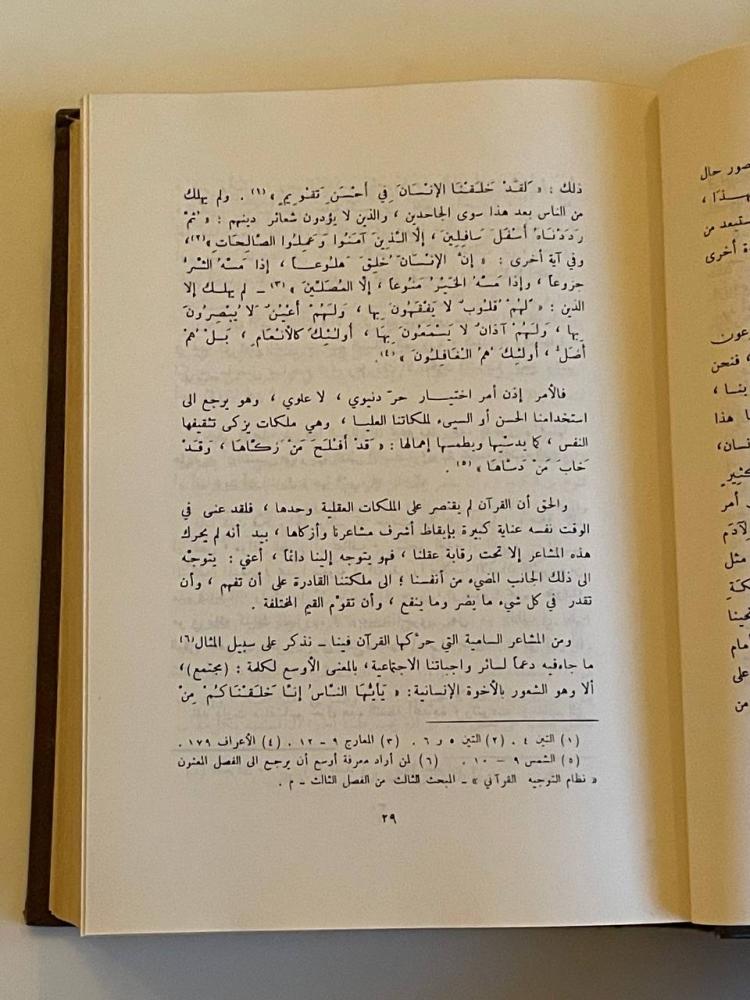 ذلك : « لَقَدْ خَلَقْنَا الإِنْسَانَ فِي أَحْسَنِ تَقْوِيمٍ »(١) . ولم يهلك
من الناس بعد هذا سوى الجاحدين ، والذين لا يؤدون شعائر دينهم : « ثُمَّ
رَدَدْنَاهُ أَسْفَلَ سَافِلِينَ ، إِلَّا الَّذِينَ آمَنُوا وَعَمِلُوا الصَّالِحَاتِ »(٢)،
وفي آية أخرى : « إِنَّ الإِنْسَانَ خُلِقَ هَلُوعاً ، إِذَا مَسَّهُ الشَّرُّ
جزوعاً ، وإِذَا مَسَّهُ الخَيْرُ مَنُوعاً ، إِلَّا المُصَلِّينَ »(٣) – لم يهلك إلا
الذين : « لَهُمْ قُلُوبٌ لَا يَفْقَهُونَ بِهَا ، وَلَهُمْ أَعْيُنٌ لَا يُبْصِرُونَ
بِهَا ، وَلَهُمْ آذَانٌ لَا يَسْمَعُونَ بِهَا ، أُولَئِكَ كَالأَنْعَامِ ، بَلْ هُمْ
أَضَلُّ ، أُولَئِكَ هُمُ الغَافِلُونَ »(٤).
فالأمر إذن أمر اختيار حرّ دنيوي ، لا علوي ، وهو يرجع الى
استخدامنا الحسن أو السيىء لملكاتنا العليا ، وهي ملكات يزكى تثقيفها
النفس ، كما يدسّيها ويطمسها إهمالها : « قَدْ أَفْلَحَ مَنْ زَكَّاهَا ، وَقَدْ
خَابَ مَنْ دَسَّاهَا »(٥) .
والحق أن القرآن لم يقتصر على الملكات العقلية وحدها ، فلقد عنى في
الوقت نفسه عناية كبيرة بإيقاظ أشرف مشاعرنا وأزكاها ، بيد أنه لم يحرك
هذه المشاعر إلا تحت رقابة عقلنا ، فهو يتوجه إلينا دائماً ، أعني : يتوجّه
الى ذلك الجانب المضيء من أنفسنا ؛ الى ملكتنا القادرة على أن تفهم ، وأن
تقدر في كل شيء ما يضر وما ينفع ، وأن تقوّم القيم المختلفة .
ومن المشاعر السامية التي حرّكها القرآن فينا – نذكر على سبيل المثال(٦)
ما جاءفيه دعماً لسائر واجباتنا الاجتماعية، بالمعنى الأوسع لكلمة : (مجتمع)،
ألا وهو الشعور بالأخوة الإنسانية: « يَأَيُّهَا النَّاسُ إِنَّا خَلَقْنَاكُمْ مِنْ
(١) التين ٤ . (٢) التين ٥ و ٦ . (٣) المعارج ٩ – ١٢ . (٤) الأعراف ١٧٩ .
(٥) الشمس ٩ – ١٠ . (٦) لمن أراد معرفة أوسع أن يرجع الى الفصل المعنون
« نظام التوجيه القرآني » – المبحث الثالث من الفصل الثالث – م .
٢٩
صور حال
بهذا ،
ستبعد من
ة أخرى
عون
، فنحن
ينا ،
ا هذا
نسان،
كثير
أمر
لآدم
مثل
كة
حينا
أمام
على
من